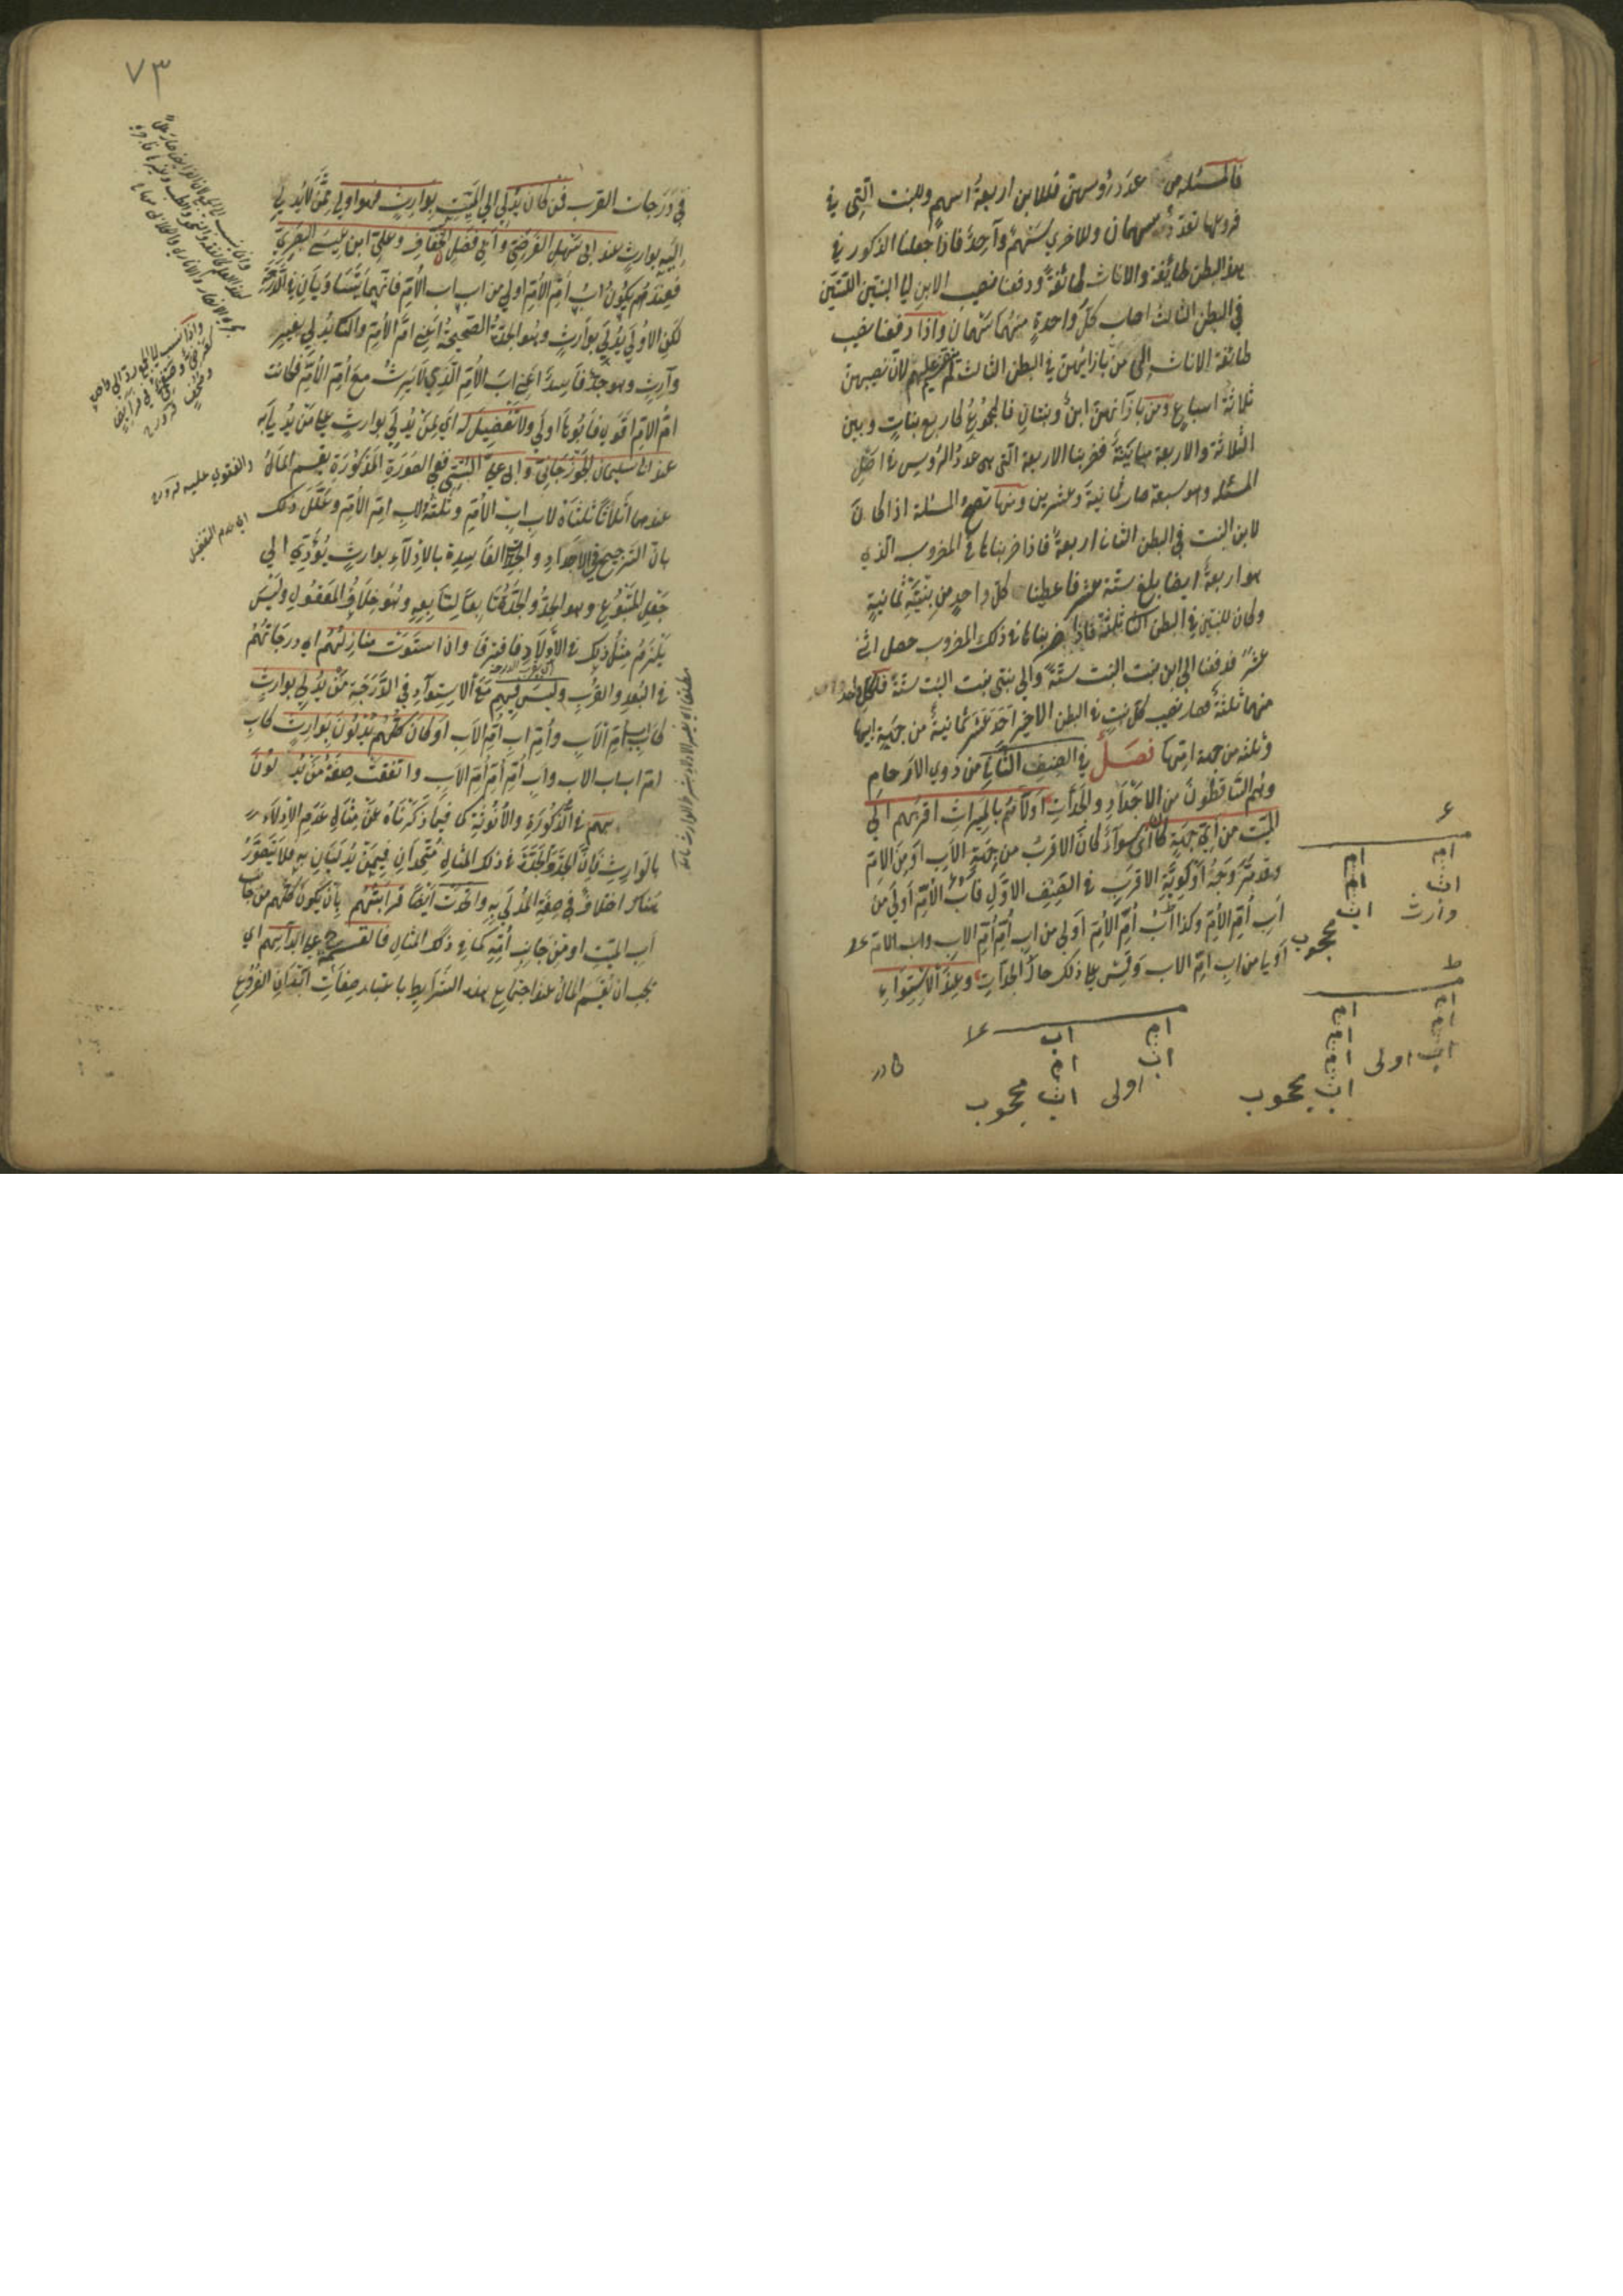 فالمسئلة من عدد رؤسهن فللابن اربعة اسهم وللبنت التي في
فروعها تعدد سهمان وللاخرى سهم واحد فاذا جعلنا الذكور في
هذا البطن طائفة والاناث طائفة ودفعنا نصيب الابن الى البنتين اللتين
في البطن الثالث اصاب كل واحدة منهما سهمان واذا دفعنا نصيب
طائفة الاناث الى من بازائهن في البطن الثالث لم يستقم عليهم لان نصيبهن
ثلاثة اسباع ومن بازائهن ابن وبنتان فالمجموع كاربع بنات وبين
الثلاثة والاربعة مباينة فضربنا الاربعة التي هي عدد الرؤس في اصل
المسئلة وهو سبعة صار ثمانية وعشرين ومنها تصح المسئلة اذا كان
لابن البنت في البطن الثاني اربعة فاذا ضربناها في المضروب الذي
هو اربعة ايضا بلغ ستة عشر فاعطينا كل واحد من بنتيه ثمانية
وكان للبنتين في البطن الثاني ثلثة فاذا ضربناها في ذلك المضروب حصل اثنى
عشر فدفعنا الى ابن بنت البنت ستة والى بنتي بنت البنت ستة فلكل واحد
منهما ثلثة فصار نصيب كل بنت في البطن الاخير احد عشر ثمانية من جهة ابيها
وثلثة من جهة امها فصل في الصنف الثاني من ذوي الارحام
وهم الساقطون من الاجداد والجدات اولاهم بالميراث اقربهم الى
الميت من اي جهة كان اي سواء كان الاقرب من جهة الاب او من الام
وقد مر وجه اولوية الاقرب في الصنف الاول فاب الام اولى من
اب ام الام وكذا اب ام الام اولى من اب ام ام الاب واب الام
اولى من اب ام الاب وقس على ذلك حال الجدات وعند الاستواء
ام ام
اب ام
وارث اب محجوب
ام ام
ام ام
اب اولى ام
اب محجوب
ام اب
اب ام
اولى اب محجوب
٧٣
في درجات القرب فمن كان يدلي الى الميت بوارث فهو اولى ممن لا يدلي
اليه بوارث عند ابي سهل الفرضي وابي فضل الخفاف وعلي ابن عيسى البصري
فعندهم يكون اب ام الام اولى من اب اب الام فانهما يتساويان في الدرجة
لكن الاولى يدلي بوارث وهو الجدة الصحيحة اعني ام الام والثاني يدلي بغير
وارث وهو جد فاسد اعني اب الام الذي لا يرث مع ام الام فكانت
ام الام اقوى فابوها اولى ولا تفضيل له اي لمن يدلي بوارث على من يدلي به
عند ابي سليمان الجوزجاني وابي علي البستي ففي الصورة المذكورة يقسم المال
عندهما اثلاثا ثلثاه لاب اب الام وثلثه لاب ام الام وعلل ذلك
بان الترجيح في الاجداد والجدات الفاسدة بالادلاء بوارث يؤدي الى
جعل المتبوع وهو الجد والجدة تابعا لتابعه وهو خلاف المعقول وليس
يلزم مثل ذلك في الاولاد فافترقا وان استوت منازلهم اي درجاتهم
في البعد والقرب وليس فيهم مع الاستواء في الدرجة من يدلي بوارث
كاب اب ام الاب وام اب ام الاب او كان كلهم يدلون بوارث كاب
ام اب اب الاب واب ام ام ام الاب واتفقت صفة من يدلون
بهم في الذكورة والانوثة كما فيما ذكرناه عن مثالي عدم الادلاء
بالوارث فان الجد والجدة في ذلك المثال متحدان فيمن يدليان به فلا يتصور
هناك اختلاف في صفة المدلى به واتحدت ايضا قرابتهم بان يكون كلهم من جانب
اب الميت او من جانب امه كما في ذلك المثال فالقسمة ح على ابدانهم اي
يجب ان يقسم المال عند اجتماع هذه الشرائط باعتبار صفات ابدان الفروع
والفتوى عليه
اي عدم التفضيل